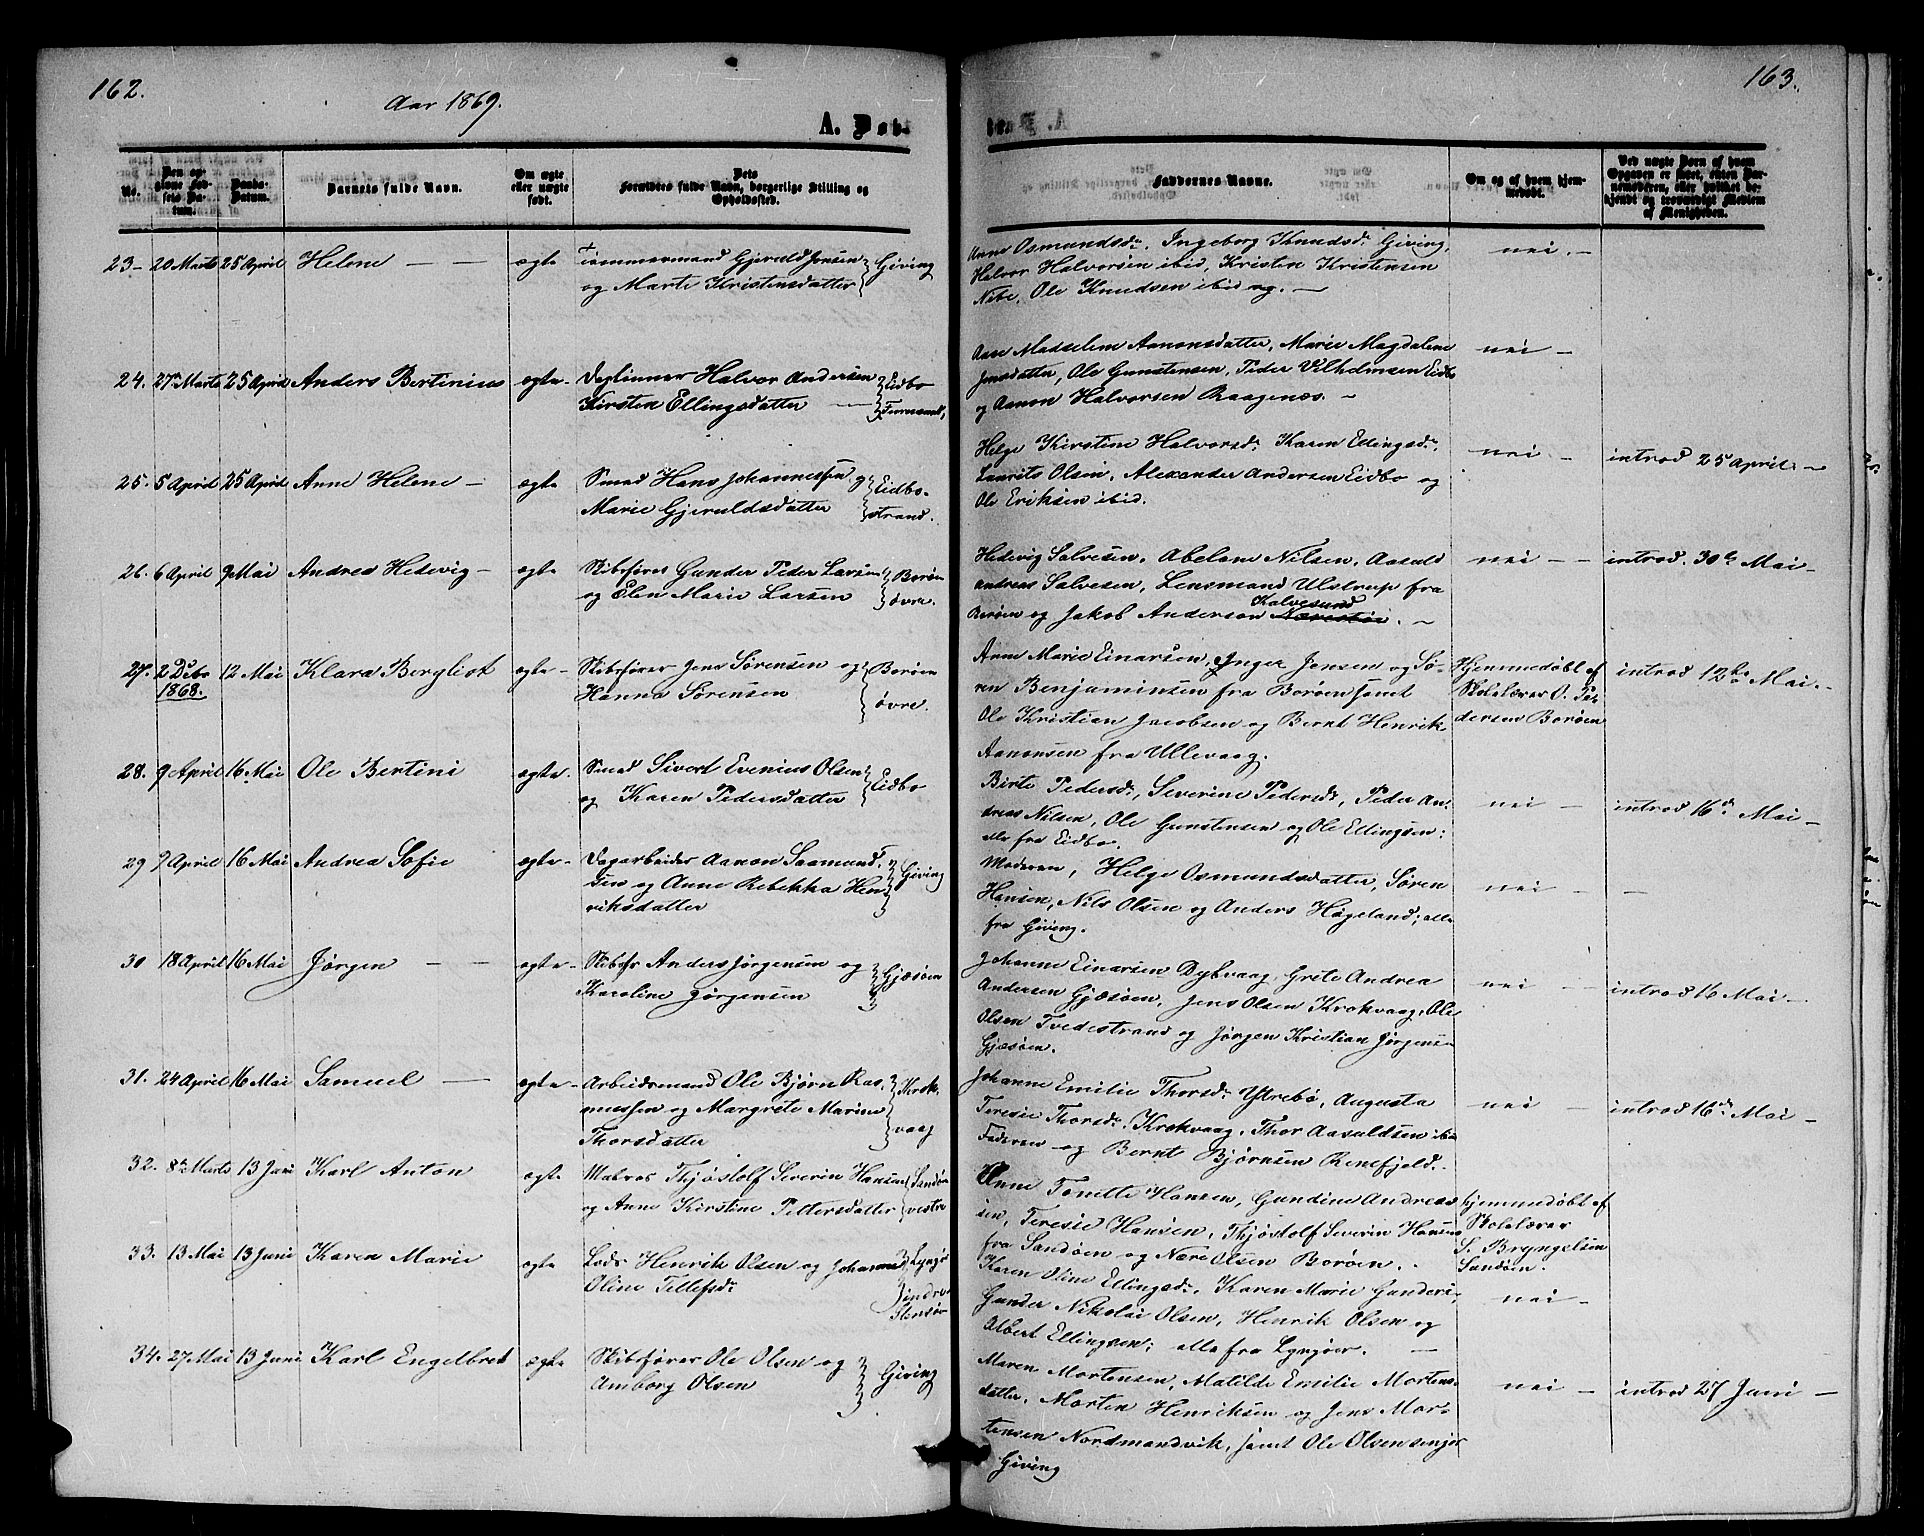 162.
Aar 1869.
A. Døb
No.
Den opgivne Fødsels Datum.
Daabs-Datum.
Barnets fulde Navn.
Om ægte eller uægte født.
Dets Forældres fulde Navn, borgerlige Stilling og Opholdssted.
23 – 20 Marts 25 April Helene — — ægte Tømmermand Gjeruld Jensen
og Marte Kristensdatter Giving
24. 27 Marts 25 April Anders Bertinius ægte - Daglønner Halvor Andersen Eidbo
Kirsten Ellingsdatter —
25. 5 April 25 April Anne Helene — ægte Smed Hans Johannessen og Eidbo-
Marie Gjeruldsdatter strand.
26. 6 April 9 Mai Andrea Hedevig - ægte Skibsfører Gunder Peder Larsen Borøen
og Elen Marie Larsen øvre.
27. 2 Debr 12 Mai Klara Bergliot ægte - Skibsfører Jens Sørensen og Borøen
1868. Hanna Sørensen øvre.
28. 9 April 16 Mai Ole Bertini ægte - Smed Sivert Evenius Olsen Eidbo
og Karen Pedersdatter
29 9 April 16 Mai Andrea Sofie ægte - Dagarbeider Aanon Saamund-
sen og Anne Rebekka Hen- Giving
riksdatter
30 18 April 16 Mai Jørgen — — ægte - Skibsfr Anders Jørgensen og Gjæsøen
Karoline Jørgensen
31. 24 April 16 Mai Samuel — ægte - Arbeidsmand Ole Bjørn Ras- Krok-
mussen og Margrete Marine vaag
Thorsdatter
32. 8de Marts 13 Juni Karl Anton ægte Matros Thjøstolf Severin Hansen Sandøen
og Anne Kirstine Pettersdatter vestre
33. 13 Mai 13 Juni Karen Marie ægte Lods Henrik Olsen og Johanne Lyngør
Oline Tellefsdr indre
34. 27 Mai 13 Juni Karl Engelbret ægte Skibsfører Ole Olsen og Giving
Amborg Olsen
163.
Faddernes Navne.
Om og af hvem hjemmedøbt.
Ved uægte Børn af hvem Opgaven er skeet, enten Barnemoderen, eller hvilket bekjendt og troværdigt Medlem af Menigheden.
Anne Osmundsdr. Ingeborg Knudsdr. Giving, nei. —
Halvor Halvorsen ibid, Kristen Kristensen
Nebe, Ole Knudsen ibid —
Aase Madselene Aanonsdatter, Marie Magdalene nei —
Jensdatter, Ole Gunstensen, Peder Vilhelmsen Eidbo
og Aanon Halvorsen Kragenæs. —
Helge Kirstine Halvorsdr. Karen Ellingsdr. nei — introd 25 April —
Laurits Olsen, Alexander Andersen Eidbo og
Ole Eriksen ibid.
Hedevig Salvesen, Abelone Nilsen, Aasuld nei — — introd. 30te Mai —
Andreas Salvesen, Lensmand Ulstrup fra
Borøen og Jakob Anderson Kalvesund —
Anne Marie Einarsen, Inger Jensen og Sø- Hjemmedøbt af introd 12te Mai. -
ren Benjaminsen fra Borøen samt Skolelærer O. Pe-
Ole Kristian Jacobsen og Bernt Henrik dersen Borøen
Aanonsen fra Ullevaag.
Birte Pedersdr., Severine Pedersdr., Peder An- nei — introd 16de Mai —
dreas Nilsen, Ole Gunstensen og Ole Ellingsen:
alle fra Eidbo.
Moderen, Helge Osmundsdatter, Søren nei — —
Hansen, Nils Olsen og Anders Høgeland; alle
fra Giving.
Johanne Einarsen Dybvaag, Grete Andrea
Andersen Gjæsøen, Jens Olsen Krokvaag, Ole nei — introd 16 Mai —
Olsen Tvedestrand og Jørgen Kristian Jørgensen
Gjæsøen.
Johanne Emilie Thorsdr. Ytrebø, Augusta
Teresie Thorsdr. Krokvaag, Thor Aasuldsen ibid nei — introd 16de Mai —
Faderen og Bernt Bjørnsen Renefjeld.
Anne Tonette Hansen, Gundine Andreas- hjemmedøbt af
sen, Teresie Hansen, Thjøstolf Severin Hansen Skolelærer
fra Sandøen og Nære Olsen Borøen. S. Bryngelsen
Sandøen.
Karen Oline Ellingsdr. Karen Marie Gunders. nei —
Gunder Nikolai Olsen, Henrik Olsen og
Albert Ellingsen; alle fra Lyngøer. —
Maren Mortensen, Matilde Emilie Mortens-
datter, Morten Henriksen og Jens Mor- nei — introd 27 Juni —
tensen Nordmandvik, samt Ole Olsen senjor
Giving